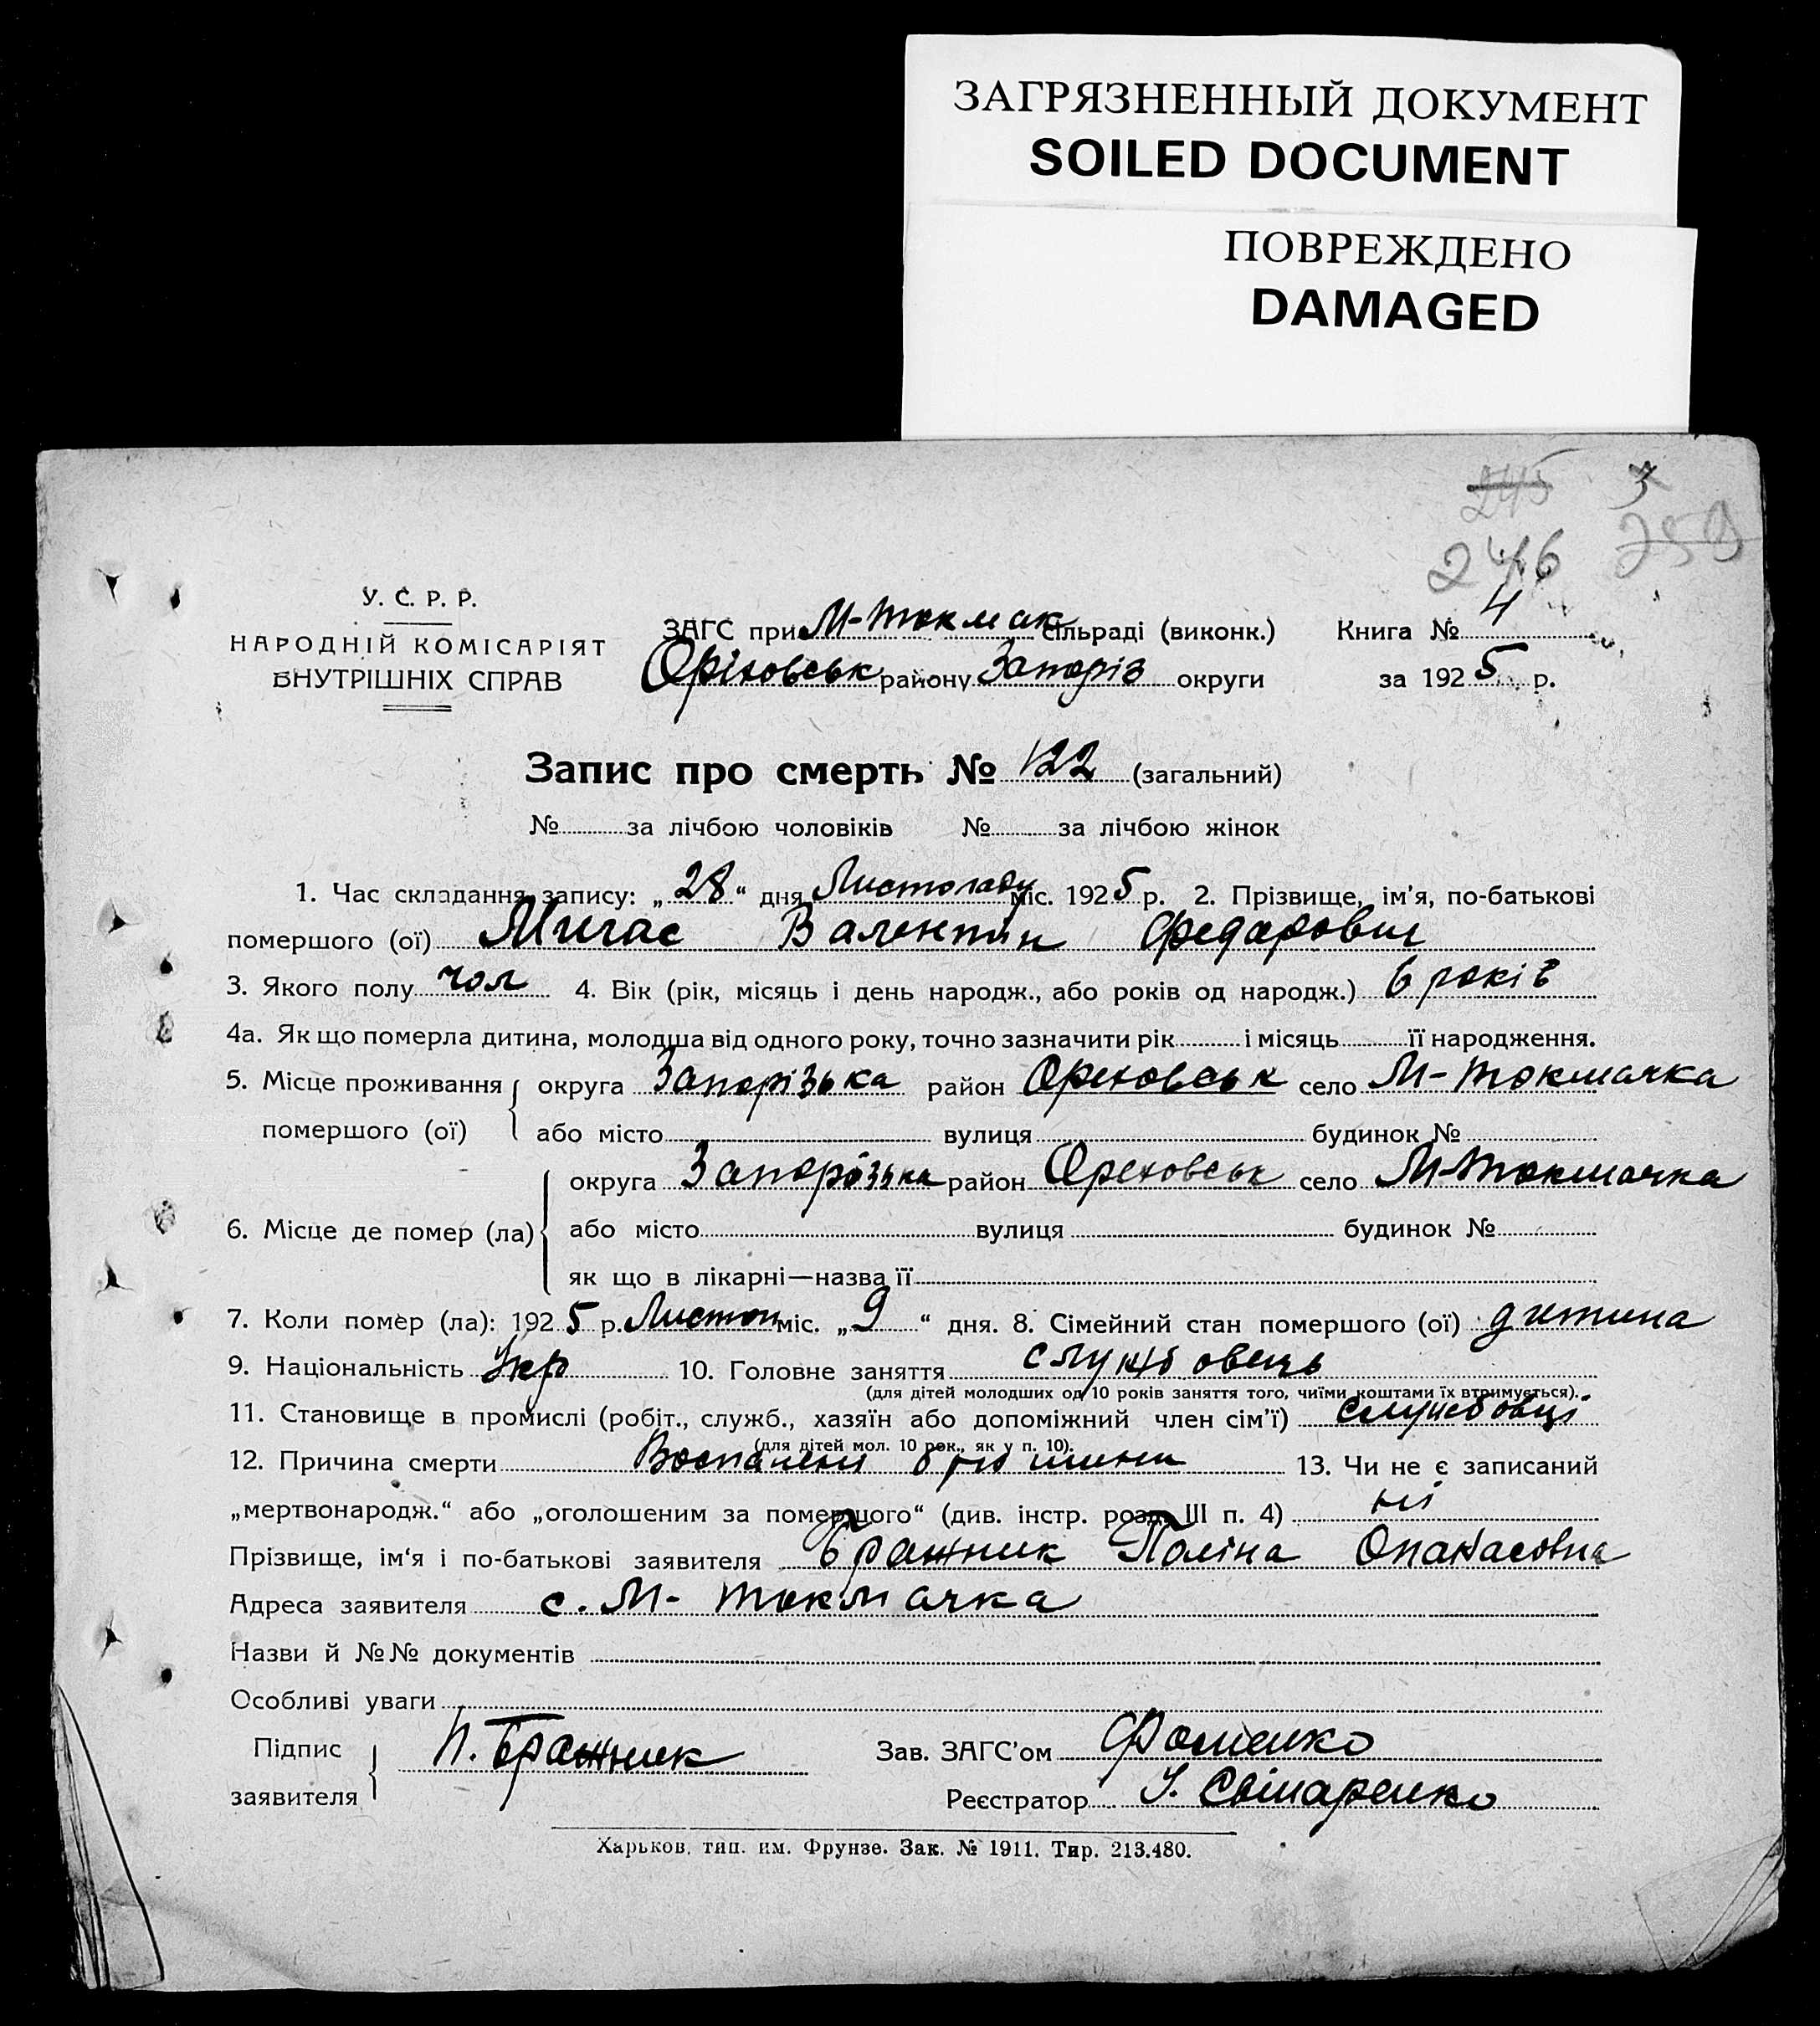 ЗАГРЯЗНЕННЫЙ ДОКУМЕНТ
SOILED DOCUMENT
ПОВРЕЖДЕНО
DAMAGED
245 3
246 259
У. С. Р. Р.
НАРОДНІЙ КОМІСАРІЯТ
ВНУТРІШНІХ СПРАВ
ЗАГС при М-Токмак сільраді (виконк.) Книга № 4
Оріховськ району Запоріз округи за 1925 р.
Запис про смерть № 122 (загальний)
№ за лічбою чоловіків № за лічбою жінок
1. Час складання запису: „28“ дня Листопаду міс. 1925 р. 2. Прізвище, ім’я, по-батькові
помершого (ої) Мигас Валентин Федорович
3. Якого полу чол 4. Вік (рік, місяць і день народж., або років од народж.) 6 років
4а. Як що померла дитина, молодша від одного року, точно зазначити рік і місяць її народження.
5. Місце проживання округа Запорізька район Ореховськ село М-Токмачка
помершого (ої) або місто вулиця будинок №
округа Запорізька район Ореховськ село М-Токмачка
6. Місце де помер (ла) або місто вулиця будинок №
як що в лікарні—назва її
7. Коли помер (ла): 1925 р. Листоп міс. „9“ дня. 8. Сімейний стан помершого (ої) дитина
9. Національність Укр 10. Головне заняття службовець
(для дітей молодших од 10 років заняття того, чиїми коштами їх втримується).
11. Становище в промислі (робіт., служб., хазяїн або допоміжний член сім’ї) службовці
(для дітей мол. 10 рок., як у п. 10).
12. Причина смерти 13. Чи не є записаний
„мертвонародж.“ або „оголошеним за помершого“ (див. інстр. розд. III п. 4) ні
Прізвище, ім‘я і по-батькові заявителя Бражник Поліна Опанасовна
Адреса заявителя с. М-Токмачка
Назви й №№ документів
Особливі уваги
Підпис заявителя П. Бражник Зав. ЗАГС’ом Фоменко
Реєстратор І. Свінаренко
Харьков, тип. им. Фрунзе. Зак. № 1911. Тир. 213.480.